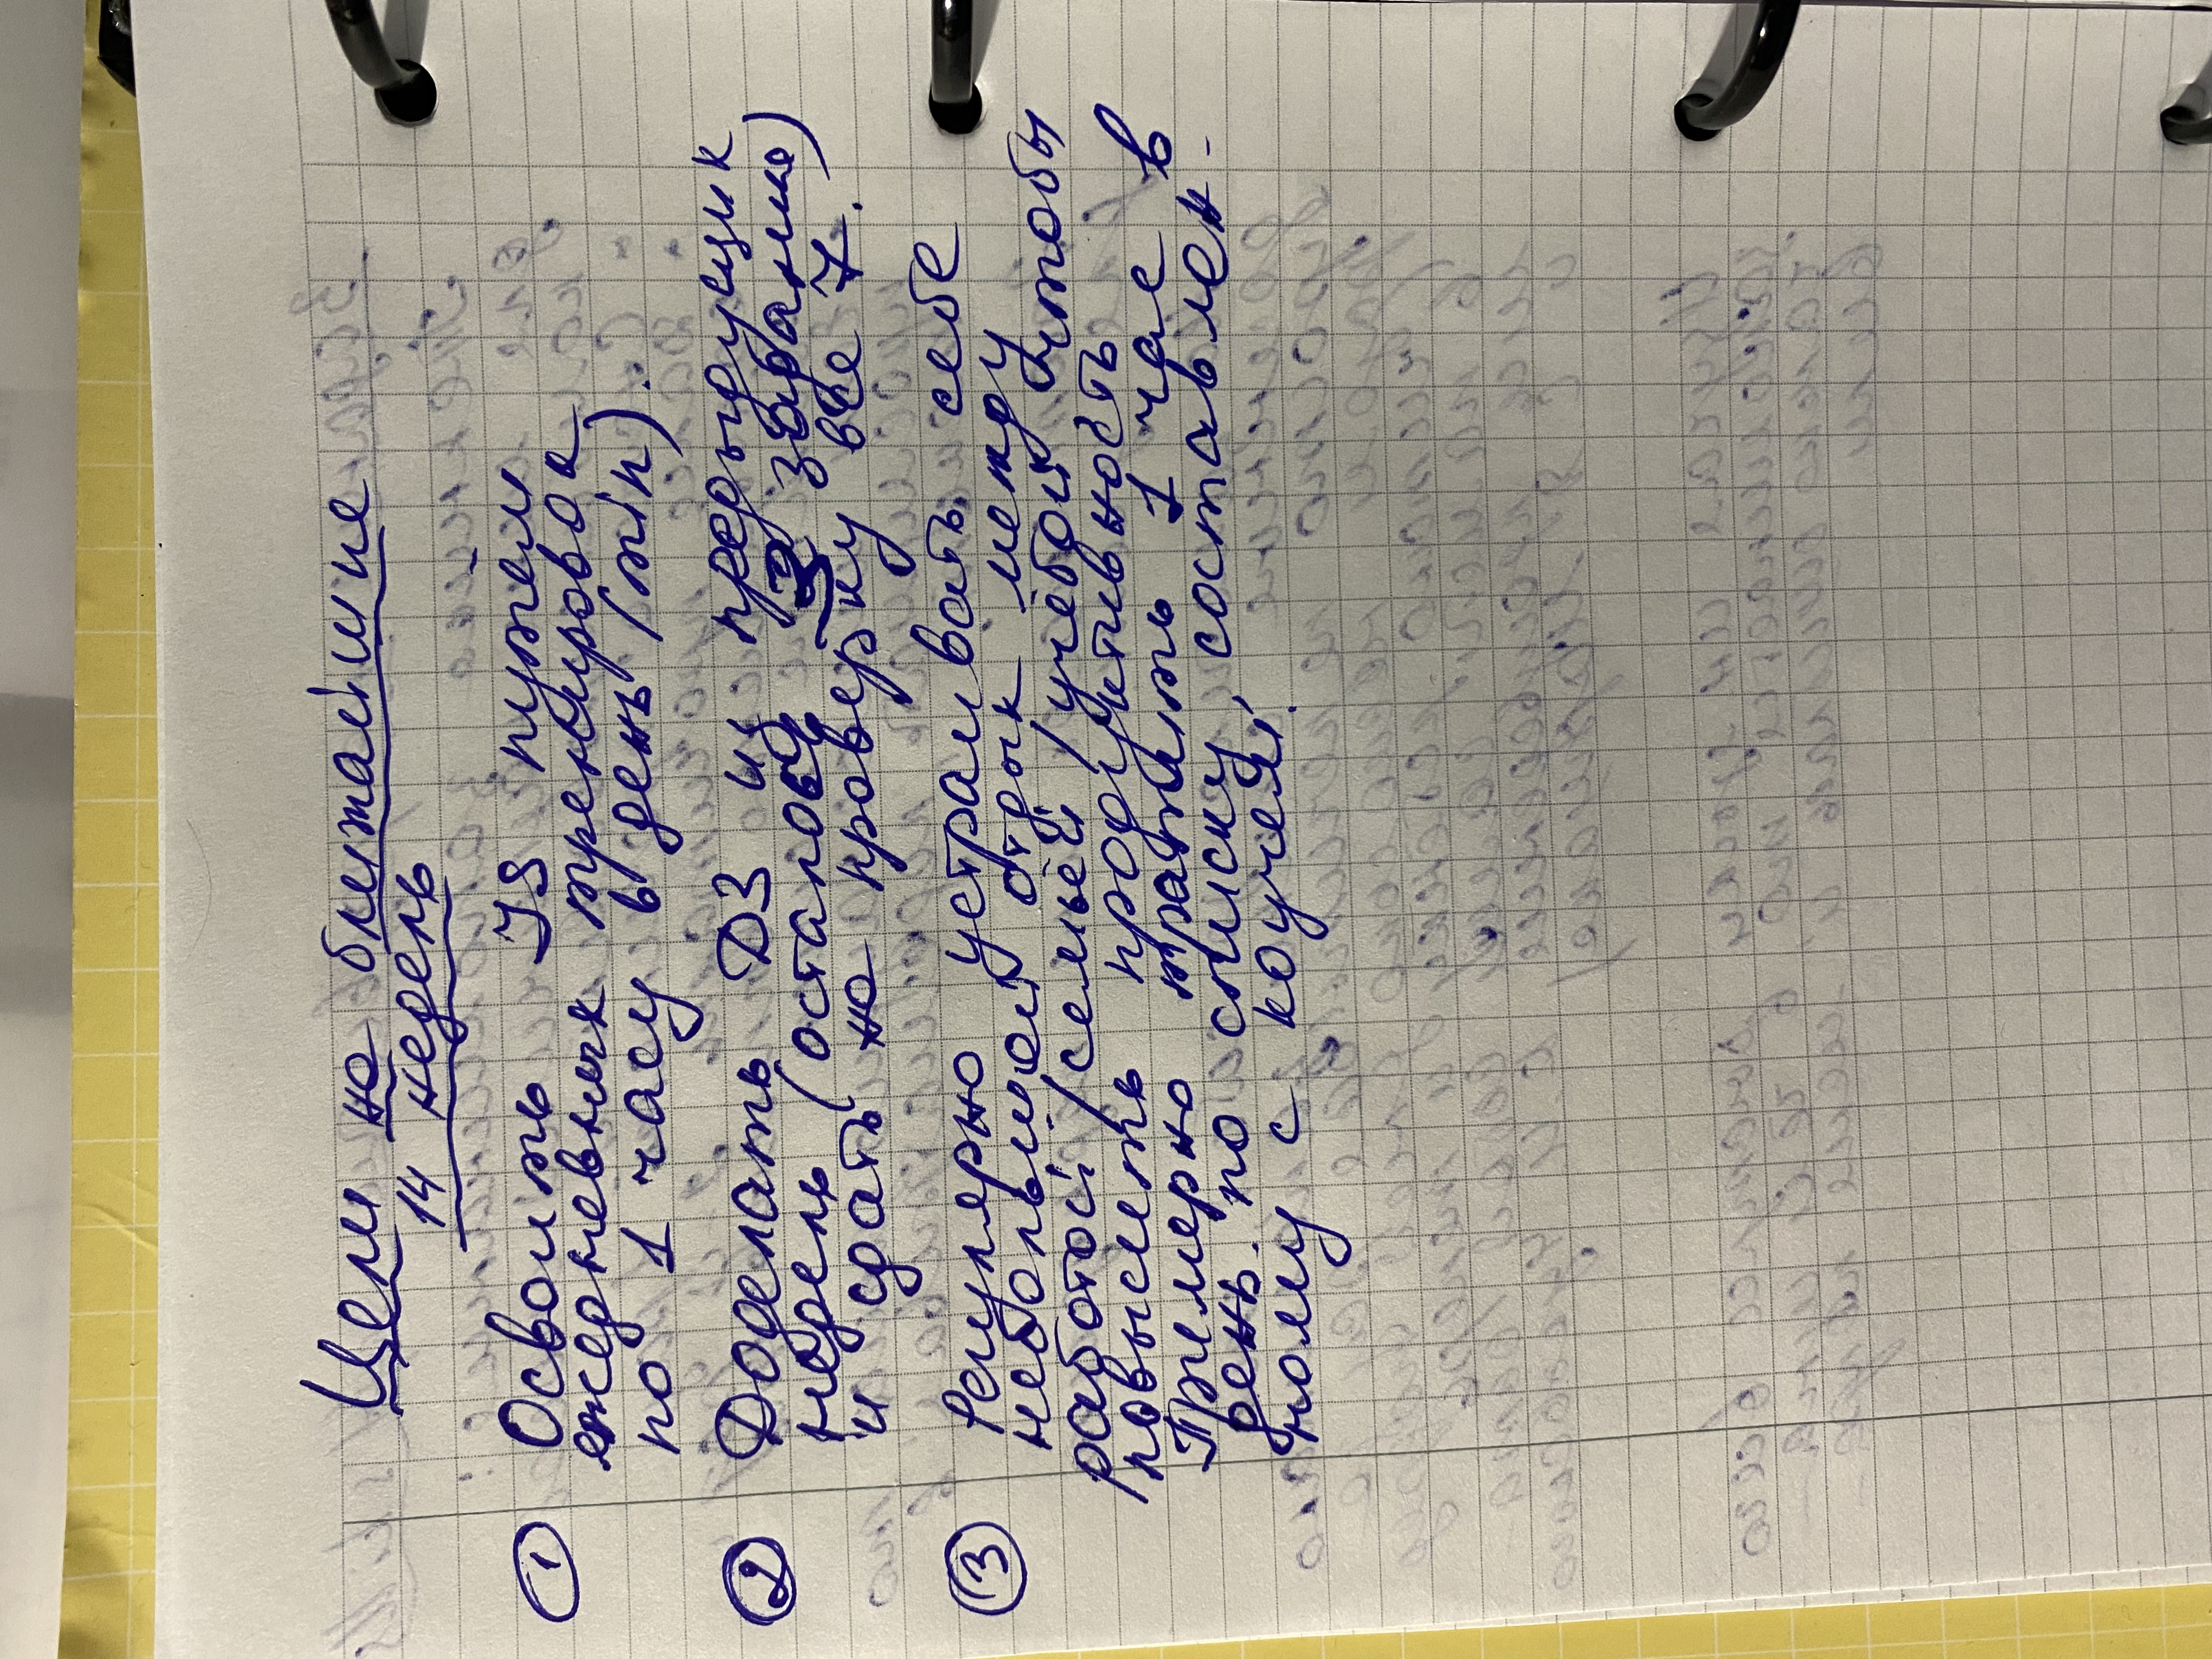 Цели на ближайшие
14 недель
1 Освоить JS путём
ежедневных тренировок
по 1 часу в день (min).
2 Доделать ДЗ из предыдущих
недель (осталось 3 задания)
и сдать на проверку все 7.
3 Регулярно устраивать себе
небольшой отдых между
работой/семьёй/учёбой, чтобы
повысить продуктивность
Примерно тратить 1 час в
день по списку, составлен-
ному с коучем.